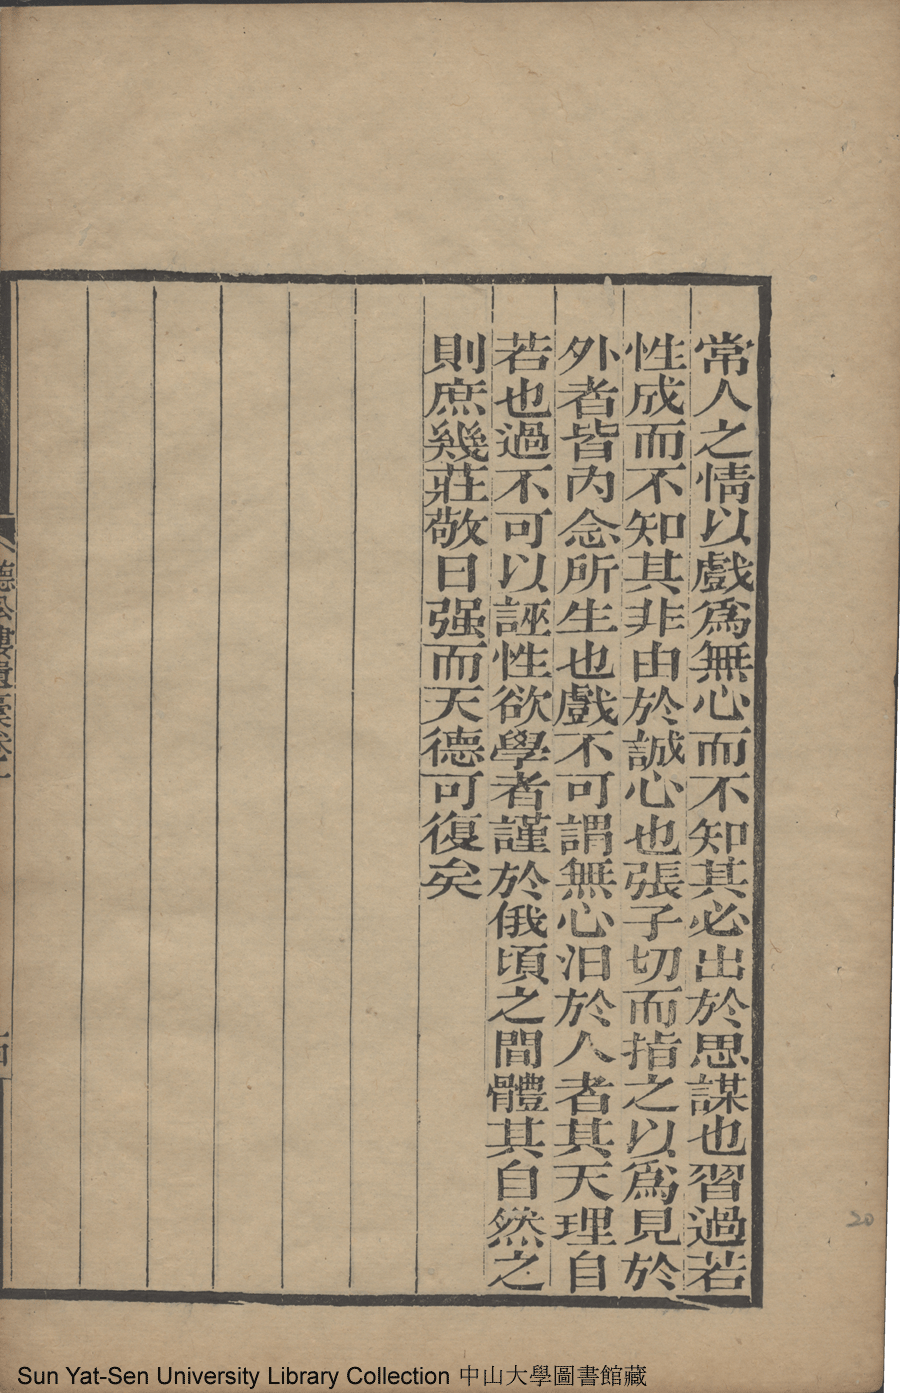 常人之情以戲爲無心而不知其必出於思謀也習過若
性成而不知其非由於誠心也張子切而指之以爲見於
外者皆內念所生也戲不可謂無心汩於人者其天理自
若也過不可以誣性欲學者謹於俄頃之間體其自然之
則庶幾莊敬日强而天德可復矣
20
Sun Yat-Sen University Library Collection 中山大學圖書館藏